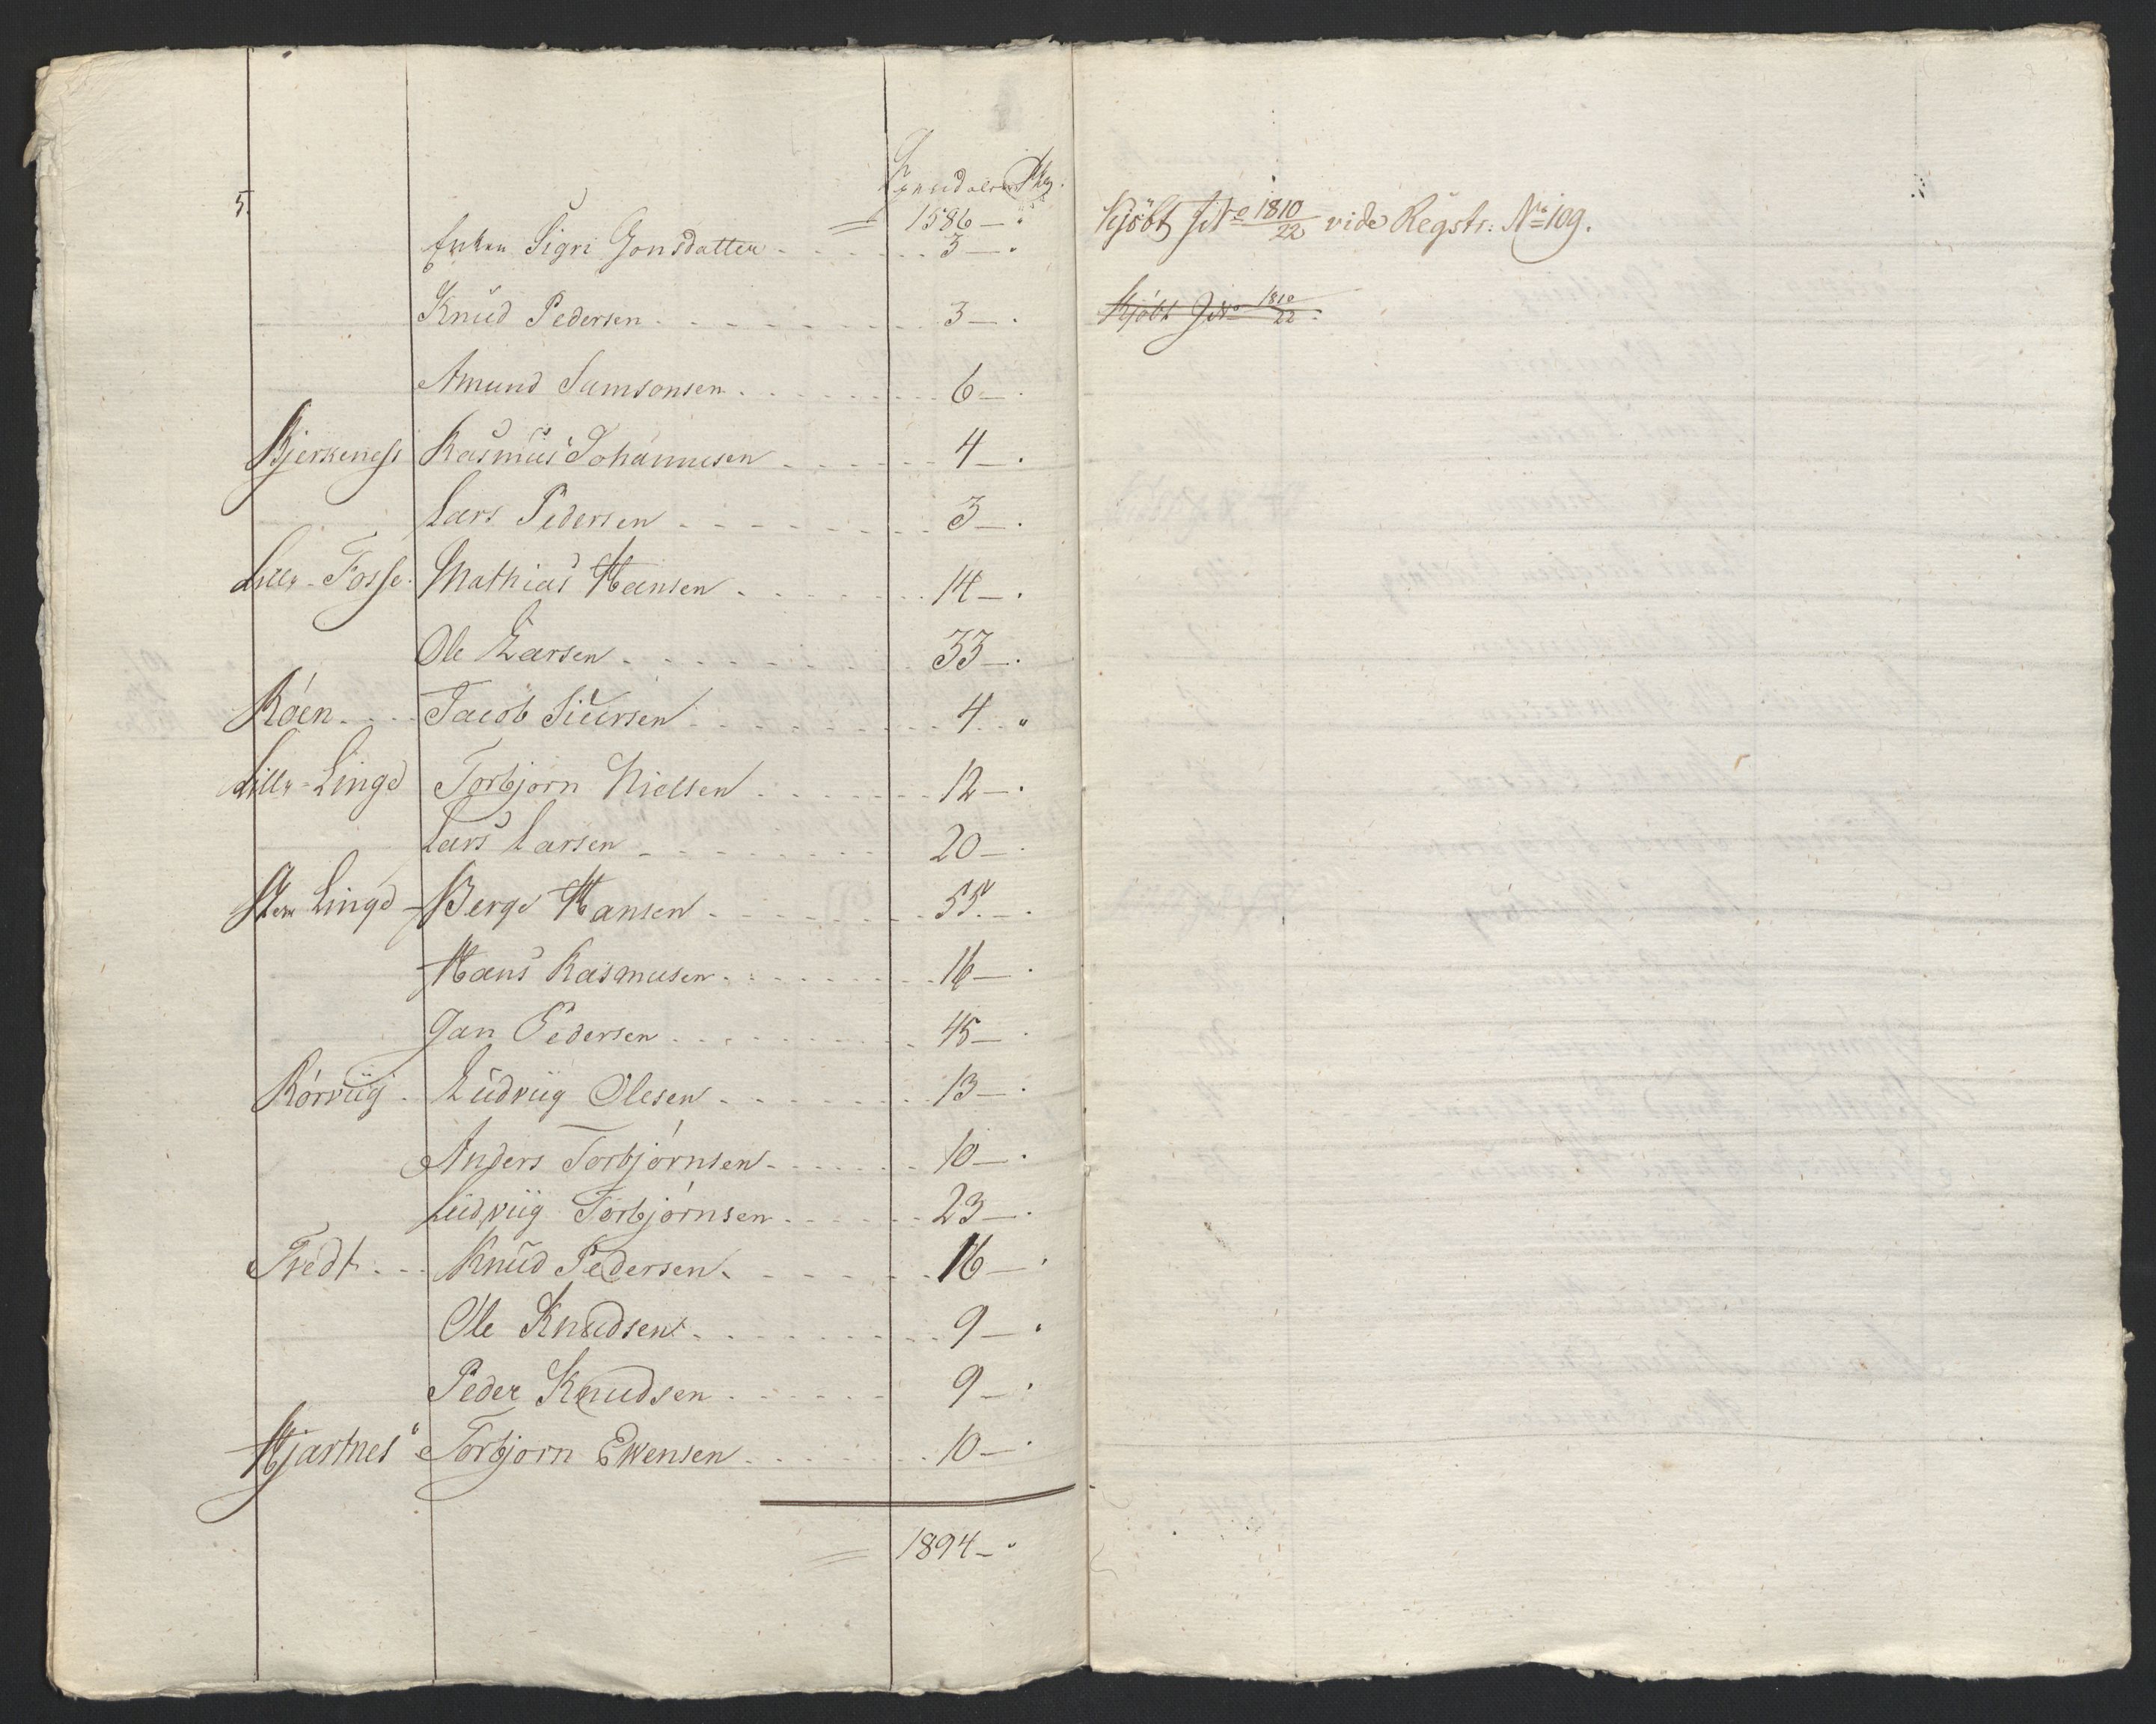 5.
1586 — "
Enken Sigri Jonsdatter - - - - 3 — .
Knud Pedersen - - - - 3 — .
Amund Samsonsen - - - - 6 — .
Bjerkeness Rasmus Johannesen - - - - 4 — .
Lars Pedersen - - - - 3 — .
Lille-Fosse. Mathias Hansen - - - - 14 — .
Ole Larsen - - - - 33 — .
Róen - - Jacob Siursen - - - - 4 . "
Lille-Linge Torbjörn Nielsen - - - - 12 — .
Lars Larsen - - - - 20 — .
Linge Berge Hansen - - - - 55. — .
Hans Rasmusen - - - - 16 — .
Jan Pedersen - - - - 45 — .
Rórviig - Ludviig Olesen - - - - 13 — .
Anders Torbjórnsen - - - - 10 — .
Ludviig Torbjórnsen - - - - 23 — .
Tredt - - Knud Pedersen - - - - 16 — .
Ole Knudsen - - - - 9 — .
Peder Knudsen - - - - 9 — .
Hjartnes Torbjorn Ewensen - - - - 10 — .
1894 — "
Kjöbt J No 1810/22 vide Regstr: No 109.
Kjöbt J No 1810/22.